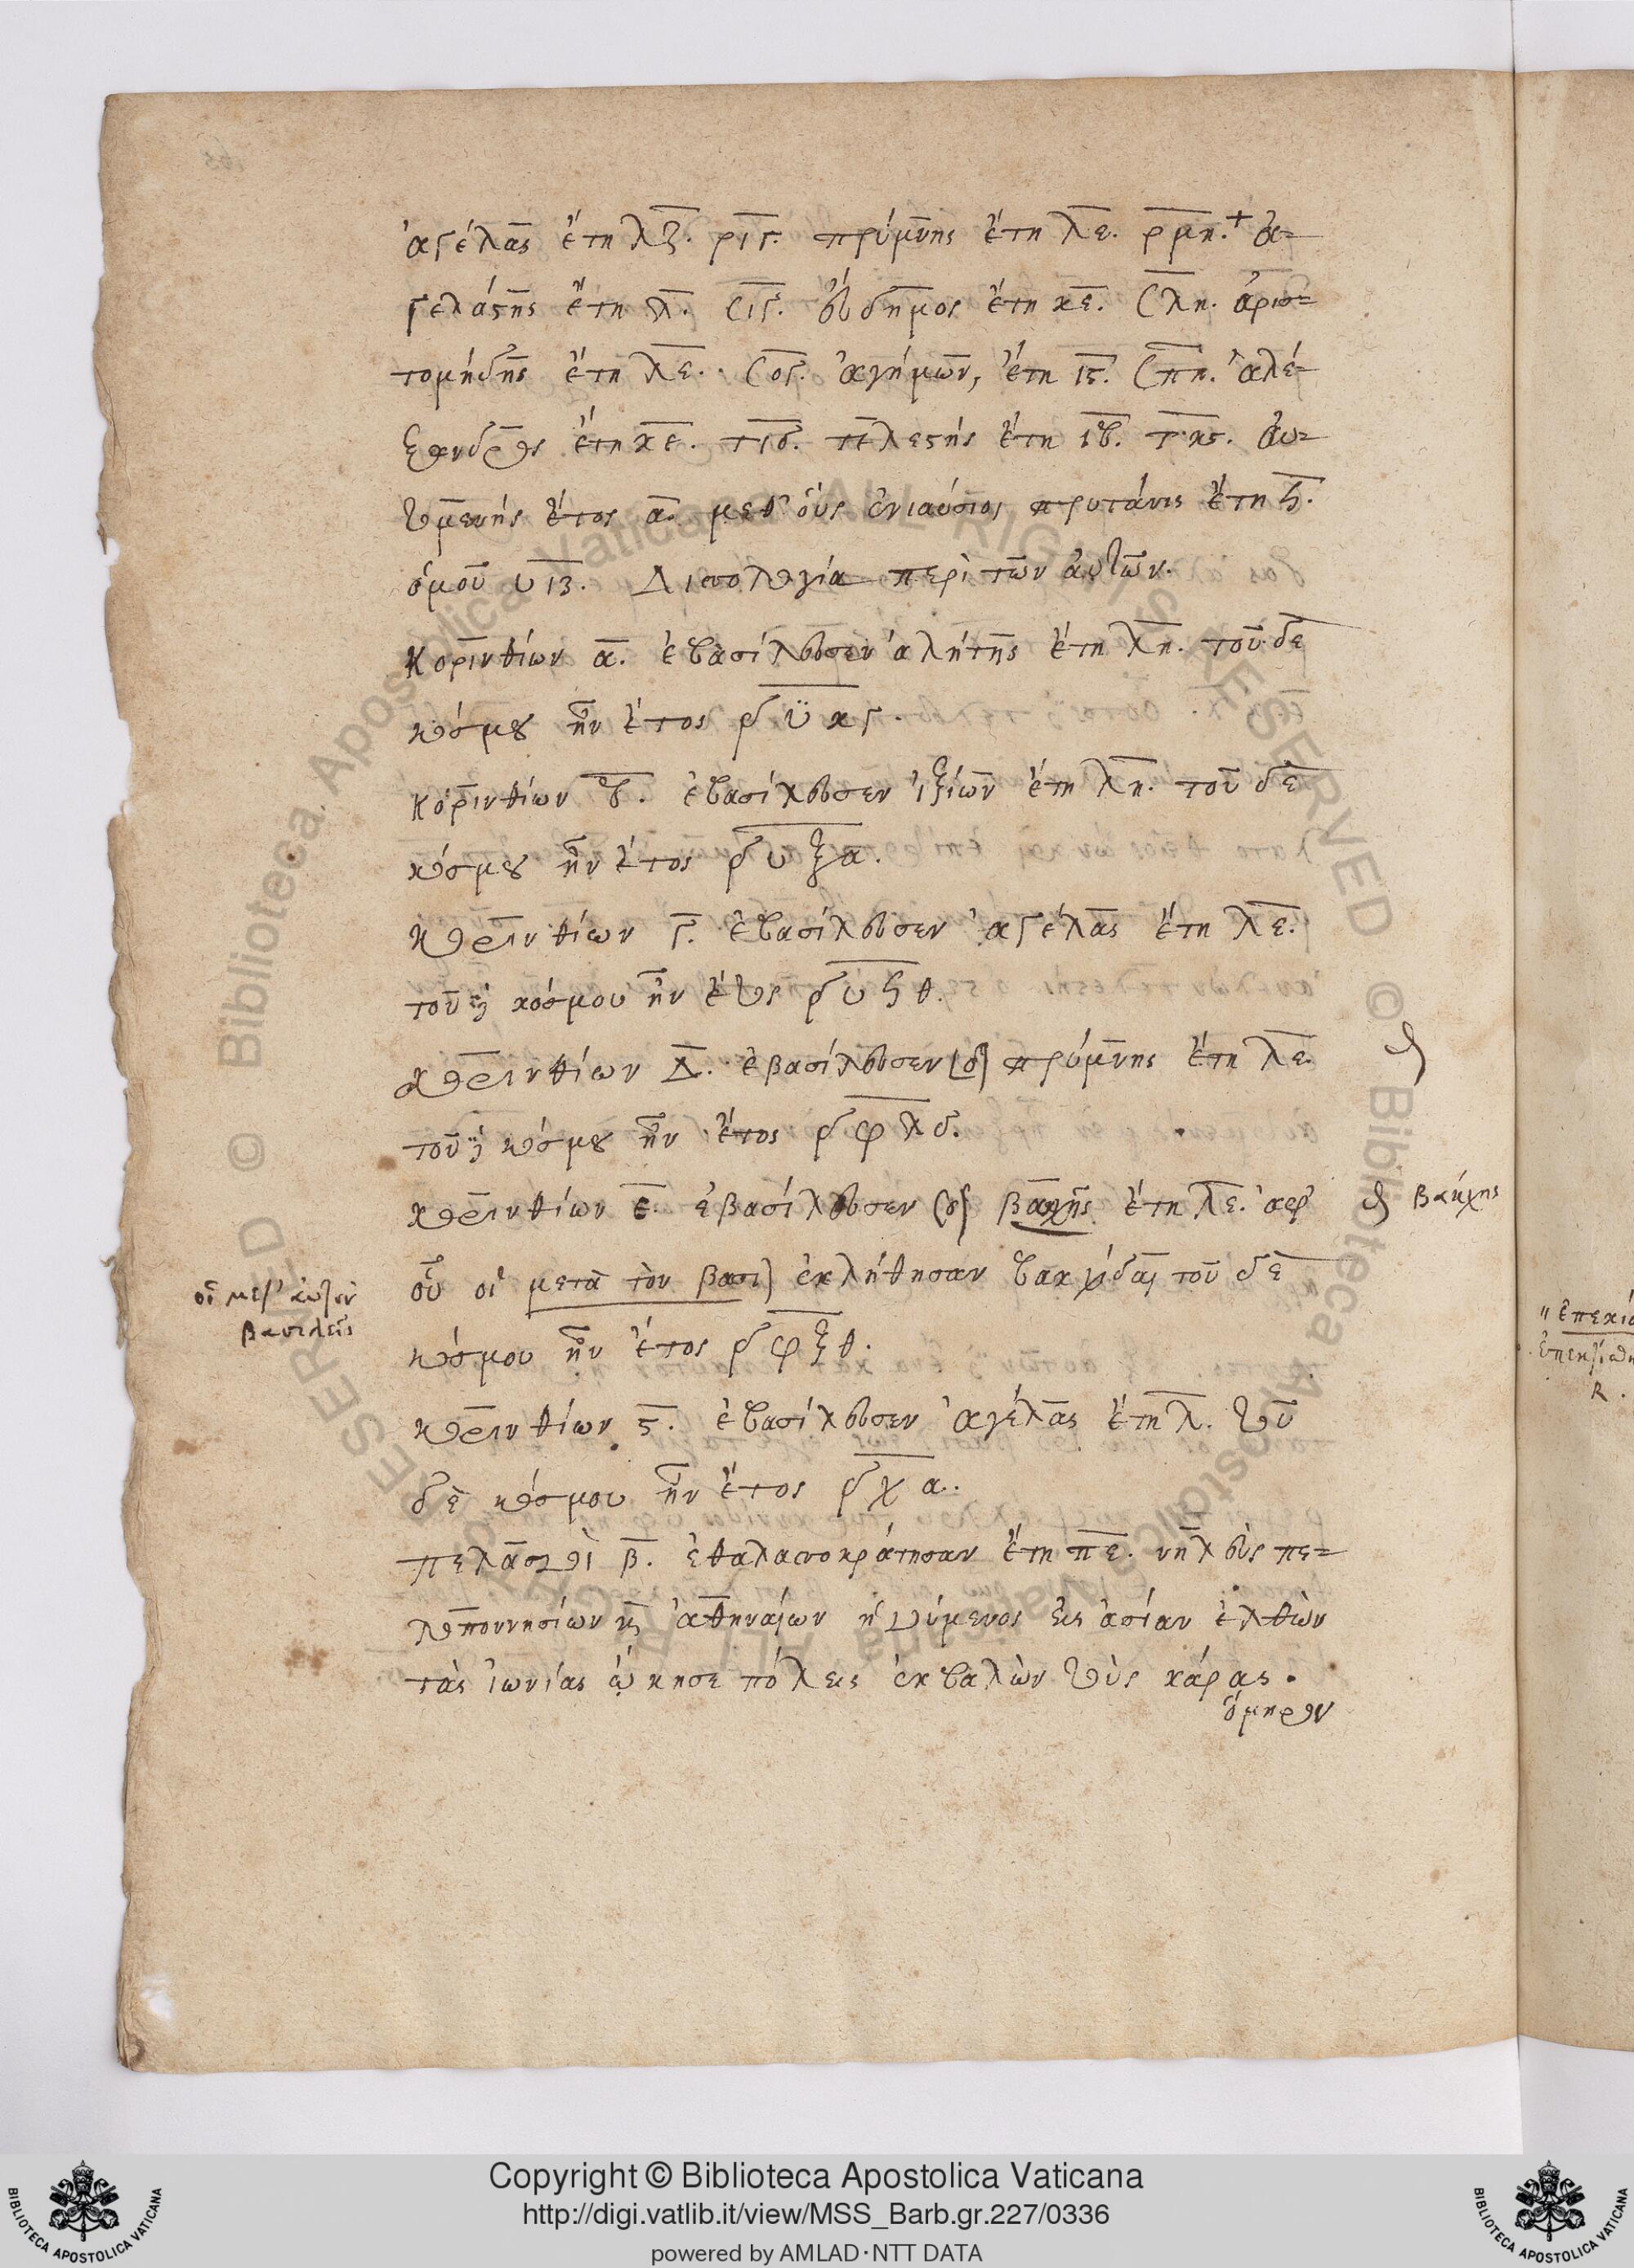 ἀγέλας ἔτη λζ. ριγ. πρύμνης ἔτη λε. ρμη.+ ἀ-
γελάστης ἔτη λ. Ϲιγ. εὔδημος ἔτη κε. Ϲλη. ἀρισ-
τομήδης ἔτη λε. Ϲογ. ἀγήμων, ἔτη ις. Ϲπη. ἀλέ-
ξανδρος ἔτη κε. τιδ. τελεστής ἔτη ιβ. τκς. αὐ-
τομενής ἔτος α. μεθ' οὓς ἐνιαύσιος πρυτάνις ἔτη ϟ.
ὁμοῦ υιζ. περὶ τῶν αὐτῶν.
κορινθίων α. ἐβασίλευσεν ἀλήτης ἔτη λη. τοῦ δὲ
κόσμου ἦν ἔτος ͵δϋκγ.
κορινθίων β. ἐβασίλευσεν ἰξίων ἔτη λη. τοῦ δὲ
κόσμου ἦν ἔτος ͵δυξα.
κορινθίων γ. ἐβασίλευσεν ἀγέλας ἔτη λε.
τοῦ δὲ κόσμου ἦν ἔτος ͵δυϟθ.
κορινθίων Δ. ἐβασίλευσεν [δ] πρύμνης ἔτη λε.
τοῦ δὲ κόσμου ἦν ἔτος ͵δφλδ.
κορινθίων ε. ἐβασίλευσεν (δ) βάχης ἔτη λε. ἀφ'
βάκχης
οὗ οἱ μετὰ τὸν βασι] ἐκλήθησαν βακχίδαι τοῦ δὲ
οἱ μετ' αὐτὸν
βασιλεῖς
κόσμου ἦν ἔτος ͵δφξθ.
κορινθίων ς. ἐβασίλευσεν ἀγέλας ἔτη λ. τοῦ
δὲ κόσμου ἦν ἔτος ͵δχα.
πελασγοὶ β. ἐθαλασσοκράτησαν ἔτη πε. νηλεὺς πε-
λοποννησίων κ̀ ἀθηναίων ἡγούμενος εἰς ἀσίαν ἐλθὼν
τὰς ἰωνίας ᾤκησε πόλεις ἐκβαλὼν τοὺς κάρας.
ὅμηρον
Copyright © Biblioteca Apostolica Vaticana
http://digi.vatlib.it/view/MSS_Barb.gr.227/0336
powered by AMLAD·NTT DATA